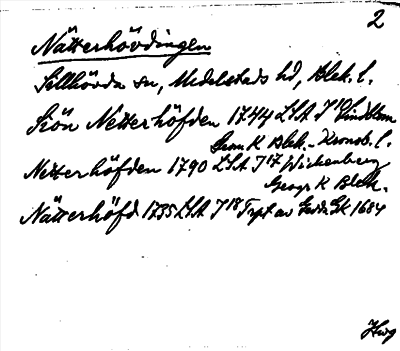 2
Nätterhövdingen
Tillhövda sn, Medelstads hd, Blek. l.
Siön Netterhöfden 1744 LSA J 10 Lindblom
Geom K Blek. - Kronob. l.
Netterhöfden 1790 LSA J 17 Wickenberg
Geogr K Blek.
Nätterhöfd 1735 LSA J 18 Trpt av Geom Gk 1684
Hwg